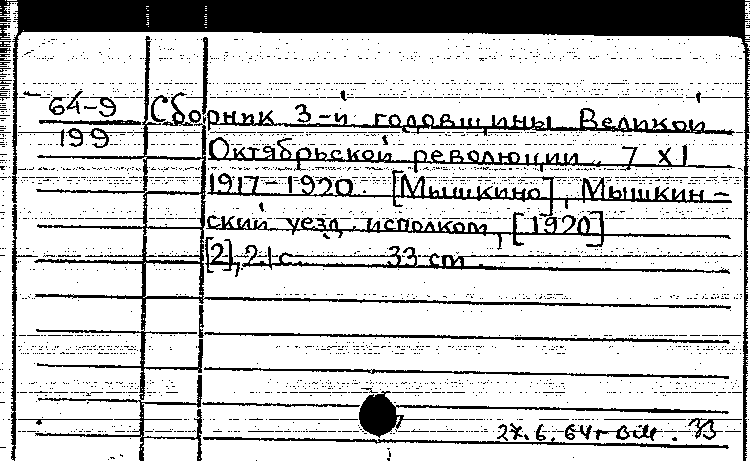 64-9 Сборник 3-й годовщины Великой
199 Октябрьской революции. 7 XI
1917-1920. [Мышкино], Мышкин-
ский уезд. исполком, [1920]
[2], 21 с. 33 cm.
27.6.64г